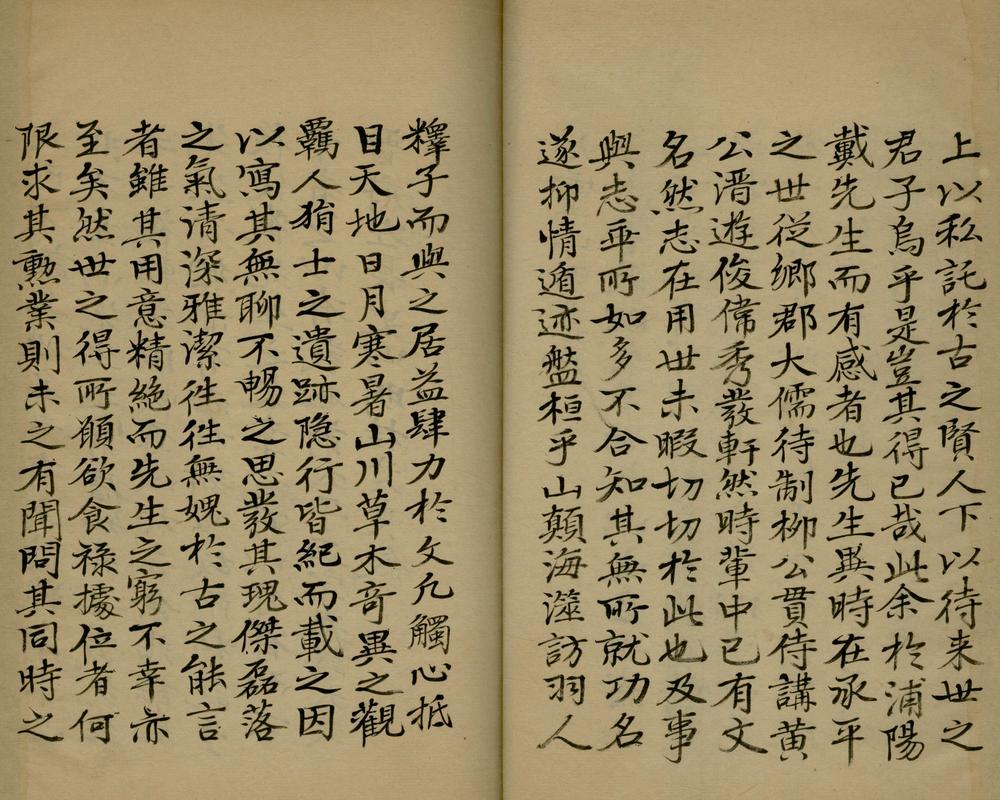 上以私託於古之賢人下以待来世之
君子烏乎是豈其得已哉此余於浦陽
戴先生而有感者也先生異時在承平
之世從鄉郡大儒待制柳公貫侍講黄
公溍遊俊偉秀發軒然時輩中已有文
名然志在用世未暇切切於此也及事
與志乖所如多不合知其無所就功名
遂抑情遁迹盤桓乎山顛海澨訪羽人
釋子而與之居益肆力於文凡觸心抵
目天地日月寒暑山川草木奇異之觀
覊人狷士之遺跡隐行皆紀而載之因
以寫其無聊不暢之思發其瑰傑磊落
之氣清深雅潔徃徃無媿於古之能言
者雖其用意精絶而先生之窮不幸亦
至矣然世之得所願欲食禄據位者何
限求其勲業則未之有聞問其同時之